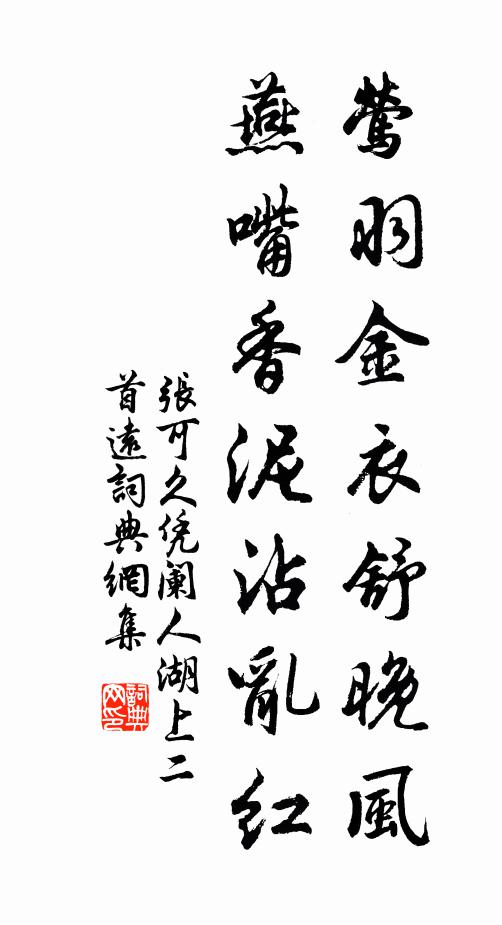 鶯羽金衣舒晚風
燕嘴香泥沾亂紅
張可久凭闌人湖上二
首遠詞典網集
詞典
网印